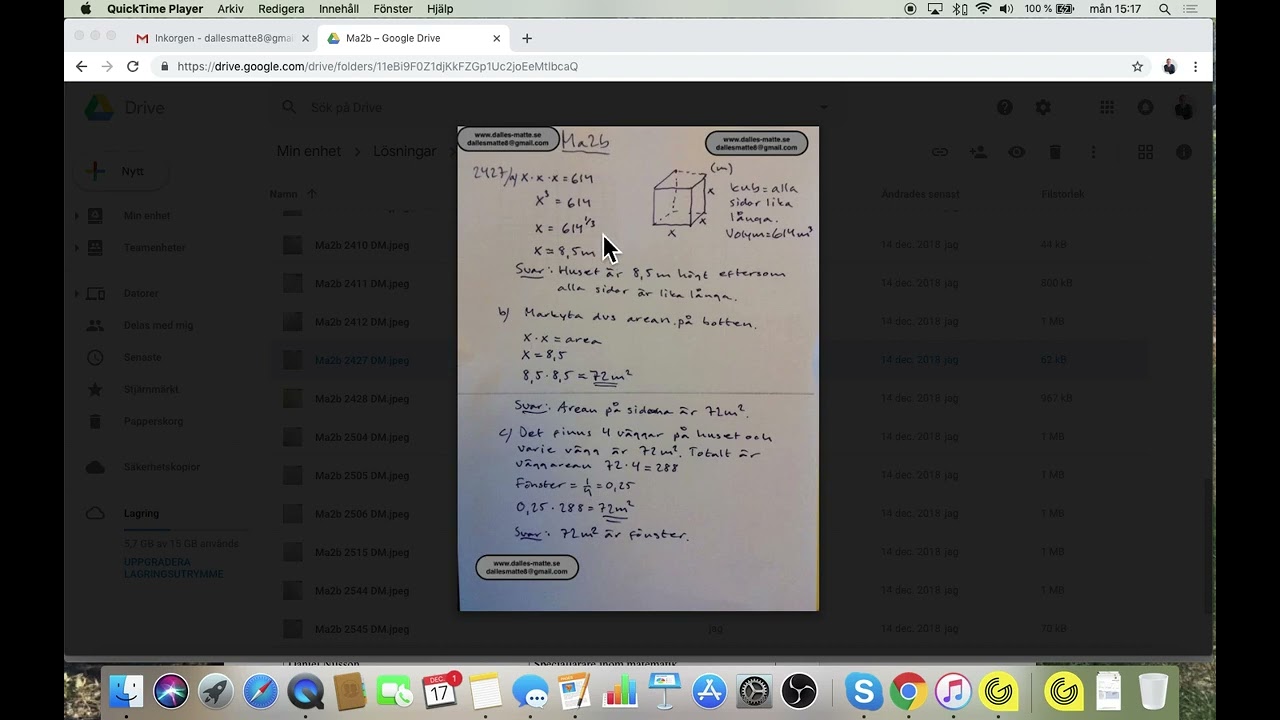 QuickTime Player Arkiv Redigera Innehåll Fönster Hjälp 100 % mån 15:17
Inkorgen - dallesmatte8@gmai
Ma2b – Google Drive
https://drive.google.com/drive/folders/11eBi9F0Z1djKkFZGp1Uc2joEeMtlbcaQ
Drive
Sök på Drive
Nytt
Min enhet
Teamenheter
Datorer
Delas med mig
Senaste
Stjärnmärkt
Papperskorg
Säkerhetskopior
Lagring
5,7 GB av 15 GB används
UPPGRADERA
LAGRINGSUTRYMME
Min enhet > Lösningar
Namn Ändrades senast Filstorlek
Ma2b 2410 DM.jpeg 14 dec. 2018 jag 44 kB
Ma2b 2411 DM.jpeg 14 dec. 2018 jag 800 kB
Ma2b 2412 DM.jpeg 14 dec. 2018 jag 1 MB
Ma2b 2427 DM.jpeg 14 dec. 2018 jag 62 kB
Ma2b 2428 DM.jpeg 14 dec. 2018 jag 967 kB
Ma2b 2504 DM.jpeg 14 dec. 2018 jag 1 MB
Ma2b 2505 DM.jpeg 14 dec. 2018 jag 1 MB
Ma2b 2506 DM.jpeg 14 dec. 2018 jag 1 MB
Ma2b 2515 DM.jpeg 14 dec. 2018 jag 1 MB
Ma2b 2544 DM.jpeg 14 dec. 2018 jag 1 MB
Ma2b 2545 DM.jpeg jag 14 dec. 2018 jag 70 kB
www.dalles-matte.se
dallesmatte8@gmail.com
Ma2b
www.dalles-matte.se
dallesmatte8@gmail.com
2427/a) x·x·x=614
x³ = 614
x = 614^1/3
x = 8,5m
(m)
x
x
x
kub = alla
sidor lika
långa.
Volym=614m³
Svar: Huset är 8,5m högt eftersom
alla sidor är lika långa.
b) Markyta dvs arean på botten.
x·x = area
x = 8,5
8,5·8,5 = 72m²
Svar: Arean på sidorna är 72m².
c) Det finns 4 väggar på huset och
varje vägg är 72m². Totalt är
väggarean 72·4 = 288
Fönster = 1/4 = 0,25
0,25·288 = 72m²
Svar: 72m² är fönster.
www.dalles-matte.se
dallesmatte8@gmail.com
Daniel Nilsson
Speciallärare inom matematik
DEC.
17
1